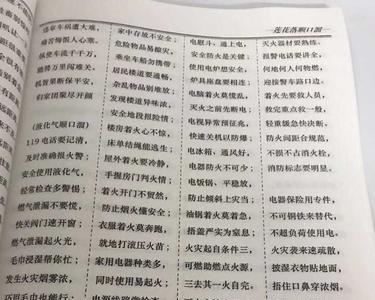 —莲花落顺口溜
遇辈车祸遭大难,
痛苦悔恨人心寒。
纵使车流千千万,
酷将万里闯难关。
机智果断保平安,
归家团聚尽开颜
(液化气顺口溜)
119电话要记清,
及时准确报火警;
安全使用液化气,
经常检查多警惕;
燃气泄漏不要慌,
快关阀门速开窗;
燃气泄漏起火光,
毛巾浸湿帮你忙;
发生火灾烟雾浓,
巧用毛巾也能行;
家中存放不安全;
危险物品易酿灾,
乘坐车船勿携带;
居民楼道要通畅,
杂乱物品别堆放;
发现楼道异味浓,
安全地段报险情;
楼房着火心不惊,
床单结绳能逃生;
屋外着火要冷静,
手握房门判火情;
着火开门不贸然,
防止烟火懂安全;
衣服着火莫奔跑,
就地打滚压火苗;
家用电器种类多,
同时使用易起火;
电熨斗、通上电,
安全防火是关键;
使用电炉想安全,
炉具座盘要相连;
电脑着火莫慌乱,
灭火之前先断电;
电视异常损征兆,
快速关机以防爆;
电冰箱、通风好,
电器防火不可少;
电饭锅、平稳放,
防止倾斜上灾当;
油锅着火莫着急,
捂盖严实为窒息;
火灾起自条件三,
可燃助燃点火源,
三去其一火自完。
灭火器材要熟练,
报警电话要讲全,
何地何人何物燃,
迎接警车路口边,
着火先要救人员,
救完重点救一般,
轻重缓急快决断,
防火间距合规范,
不损不占消火栓,
消防标志要明显,
电器保险用专件,
不可铜铁来替代,
不超负荷使用电。
火灾袭来速疏散,
披湿衣物贴地面,
捂住口鼻穿浓烟,